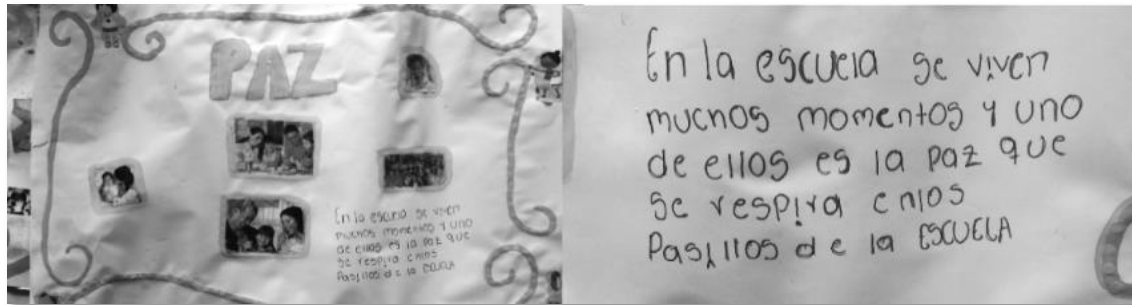 PAZ
En la escuela se viven
muchos momentos y uno
de ellos es la paz que
se respira en los
Pasillos de la ESCUELA
En la escuela se viven
muchos momentos y uno
de ellos es la paz que
se respira en los
Pasillos de la ESCUELA